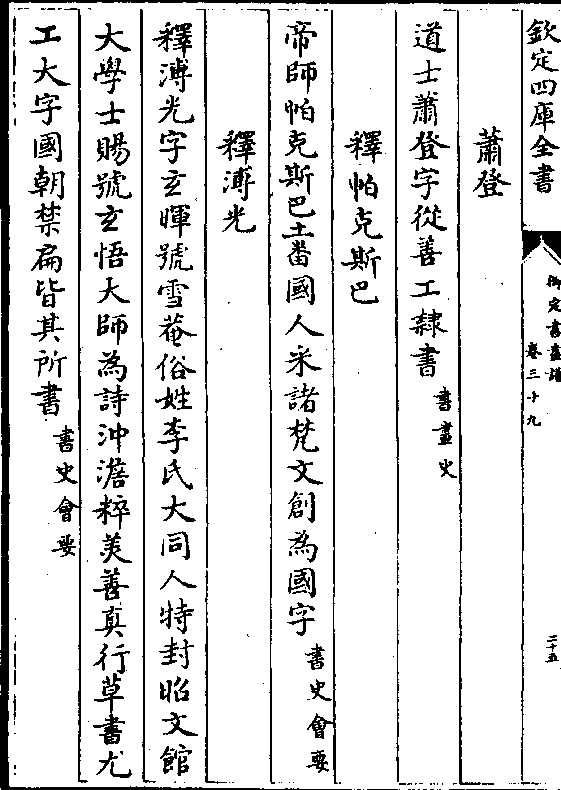 欽定四庫全書
御定書畫譜
卷三十九
二十五
蕭登
道士蕭登字從善工隸書書畫史
釋帕克斯巴
帝師帕克斯巴土番國人采諸梵文創為國字書史會要
釋溥光
釋溥光字玄暉號雪菴俗姓李氏大同人特封昭文館
大學士賜號玄悟大師為詩沖澹粹美善真行草書尤
工大字國朝禁扁皆其所書書史會要